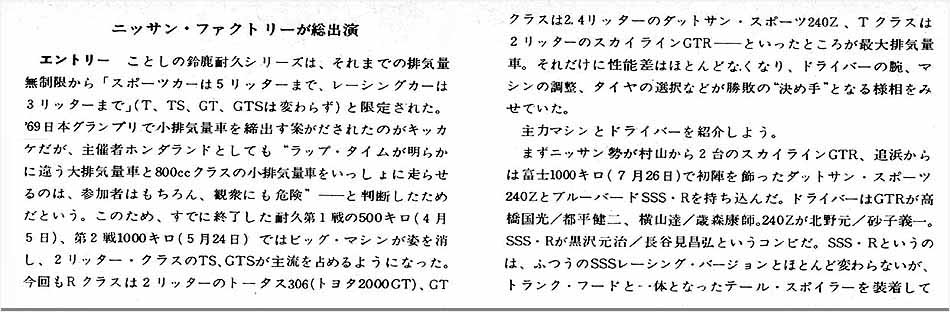 ニッサン・ファクトリーが総出演
エントリー　ことしの鈴鹿耐久シリーズは、それまでの排気量
無制限から「スポーツカーは5リッターまで、レーシングカーは
3リッターまで」(T、TS、GT、GTSは変わらず)と限定された。
'69日本グランプリで小排気量車を締出す案がだされたのがキッカ
ケだが、主催者ホンダランドとしても“ラップ・タイムが明らか
に違う大排気量車と800ccクラスの小排気量車をいっしょに走らせ
るのは、参加者はもちろん、観衆にも危険”——と判断したため
だという。このため、すでに終了した耐久第1戦の500キロ(4月
5日)、第2戦1000キロ(5月24日)ではビッグ・マシンが姿を消
し、2リッター・クラスのTS、GTSが主流を占めるようになった。
今回もRクラスは2リッターのトータス306(トヨタ2000GT)、GT
クラスは2.4リッターのダットサン・スポーツ240Z、Tクラスは
2リッターのスカイラインGTR——といったところが最大排気量
車。それだけに性能差はほとんどなくなり、ドライバーの腕、マ
シンの調整、タイヤの選択などが勝敗の“決め手”となる様相をみ
せていた。
主力マシンとドライバーを紹介しよう。
まずニッサン勢が村山から2台のスカイラインGTR、追浜から
は富士1000キロ(7月26日)で初陣を飾ったダットサン・スポーツ
240ZとブルーバードSSS・Rを持ち込んだ。ドライバーはGTRが高
橋国光／都平健二、横山達／歳森康師。240Zが北野元／砂子義一。
SSS・Rが黒沢元治／長谷見昌弘というコンビだ。SSS・Rというの
は、ふつうのSSSレーシング・バージョンとほとんど変わらないが、
トランク・フードと一体となったテール・スポイラーを装着して